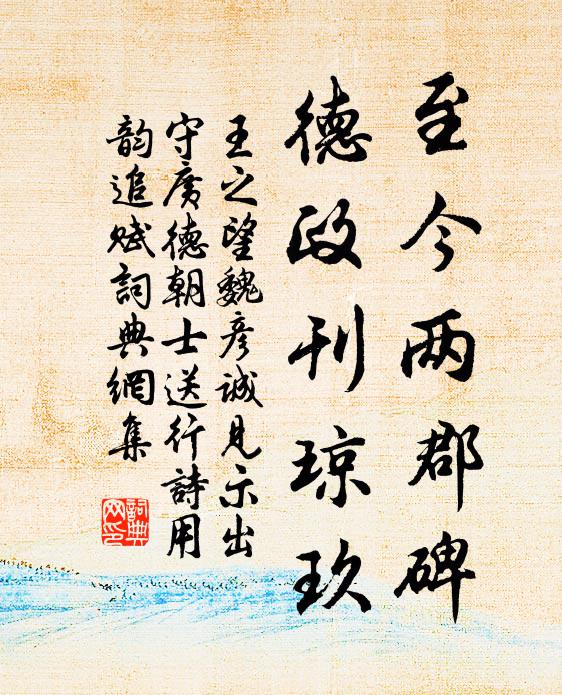 至今两郡碑
德政刊琼玖
王之望魏彦诚见示出
守广德朝士送行詩用
韵追赋詞典網集
詞典网印